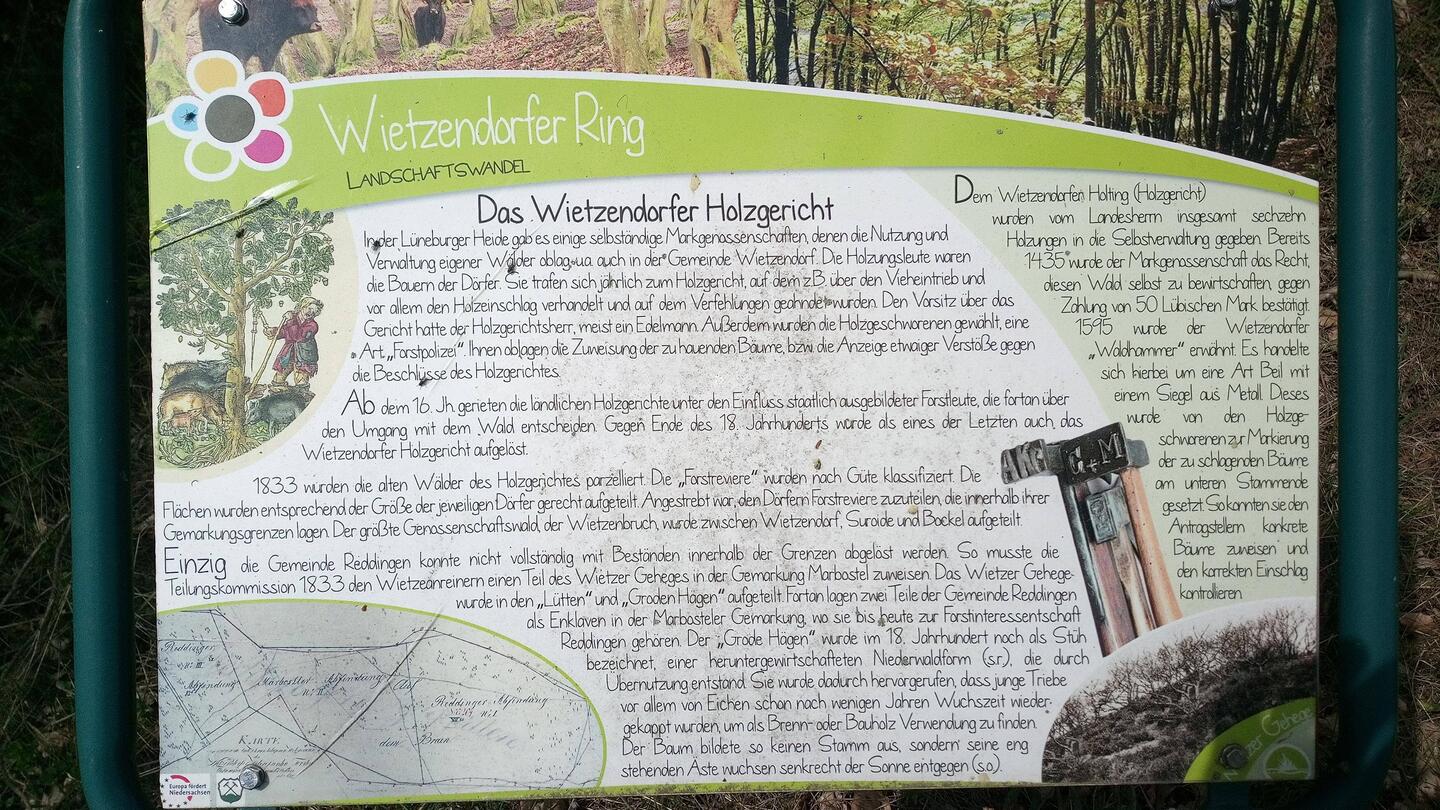 Wietzendorfer Ring
Landschaftswandel
Das Wietzendorfer Holzgericht
In der Lüneburger Heide gab es einige selbständige Markgenossenschaften, denen die Nutzung und
Verwaltung eigener Wälder oblag, u.a. auch in der Gemeinde Wietzendorf. Die Holzungsleute waren
die Bauern der Dörfer. Sie trafen sich jährlich zum Holzgericht, auf dem z.B. über den Vieheintrieb und
vor allem den Holzeinschlag verhandelt und auf dem Verfehlungen geahndet wurden. Den Vorsitz über das
Gericht hatte der Holzgerichtsherr, meist ein Edelmann. Außerdem wurden die Holzgeschworenen gewählt, eine
Art „Forstpolizei“. Ihnen oblagen die Zuweisung der zu hauenden Bäume, bzw. die Anzeige etwaiger Verstöße gegen
die Beschlüsse des Holzgerichtes.
Ab dem 16. Jh. gerieten die ländlichen Holzgerichte unter den Einfluss staatlich ausgebildeter Forstleute, die fortan über
den Umgang mit dem Wald entscheiden. Gegen Ende des 18. Jahrhunderts wurde als eines der Letzten auch das
Wietzendorfer Holzgericht aufgelöst.
1833 wurden die alten Wälder des Holzgerichtes parzelliert. Die „Forstreviere“ wurden nach Güte klassifiziert. Die
Flächen wurden entsprechend der Größe der jeweiligen Dörfer gerecht aufgeteilt. Angestrebt war, den Dörfern Forstreviere zuzuteilen, die innerhalb ihrer
Gemarkungsgrenzen lagen. Der größte Genossenschaftswald, der Wietzenbruch, wurde zwischen Wietzendorf, Suroide und Bockel aufgeteilt.
Einzig die Gemeinde Reddingen konnte nicht vollständig mit Beständen innerhalb der Grenzen abgelöst werden. So musste die
Teilungskommission 1833 den Wietzeanreinern einen Teil des Wietzer Geheges in der Gemarkung Marbostel zuweisen. Das Wietzer Gehege
wurde in den „Lütten“ und „Groden Hägen“ aufgeteilt. Fortan lagen zwei Teile der Gemeinde Reddingen
als Enklaven in der Marbosteler Gemarkung, wo sie bis heute zur Forstinteressentschaft
Reddingen gehören. Der „Grode Hägen“ wurde im 18. Jahrhundert noch als Stüh
bezeichnet, einer heruntergewirtschafteten Niederwaldform (s.r.), die durch
Übernutzung entstand. Sie wurde dadurch hervorgerufen, dass junge Triebe
vor allem von Eichen schon nach wenigen Jahren Wuchszeit wieder-
gekappt wurden, um als Brenn- oder Bauholz Verwendung zu finden.
Der Baum bildete so keinen Stamm aus, sondern seine eng
stehenden Äste wuchsen senkrecht der Sonne entgegen (s.o.).
Dem Wietzendorfer Holting (Holzgericht)
wurden vom Landesherrn insgesamt sechzehn
Holzungen in die Selbstverwaltung gegeben. Bereits
1435 wurde der Markgenossenschaft das Recht,
diesen Wald selbst zu bewirtschaften, gegen
Zahlung von 50 Lübischen Mark bestätigt.
1595 wurde der Wietzendorfer
„Waldhammer“ erwähnt. Es handelte
sich hierbei um eine Art Beil mit
einem Siegel aus Metall. Dieses
wurde von den Holzge-
schworenen zur Markierung
der zu schlagenden Bäume
am unteren Stammende
gesetzt. So konnten sie den
Antragstellern konkrete
Bäume zuweisen und
den korrekten Einschlag
kontrollieren.
AKG G+M
Reddinger
Abfindung
Marbostler Abfindung
Reddinger Abfindung
Auf
dem Brein
Karte
Europa fördert
Niedersachsen
Gehege